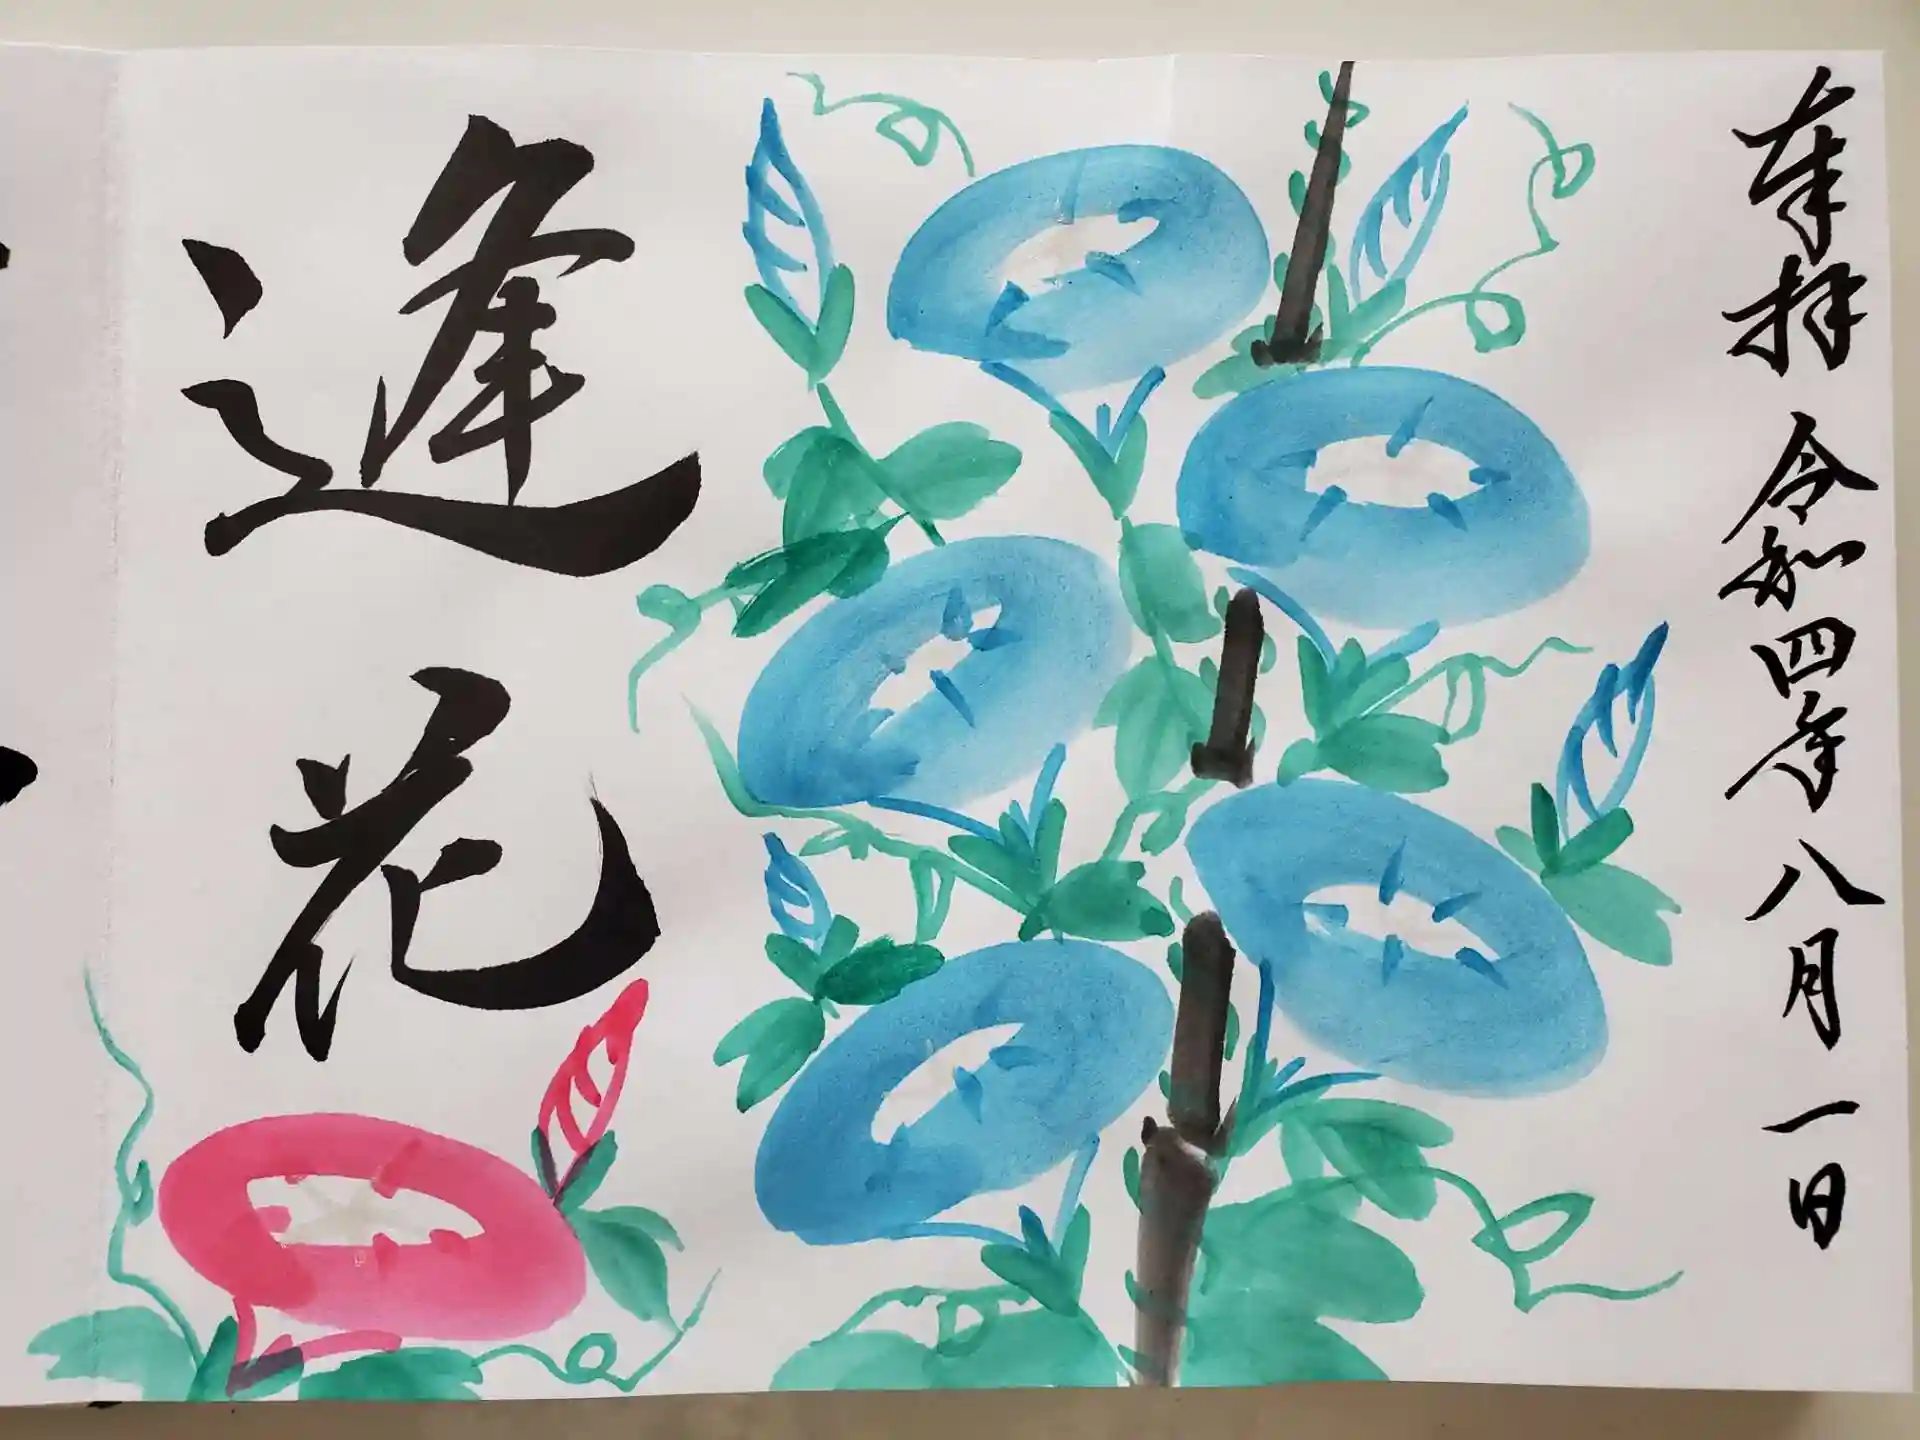 奉拝 令和四年八月一日
逢花